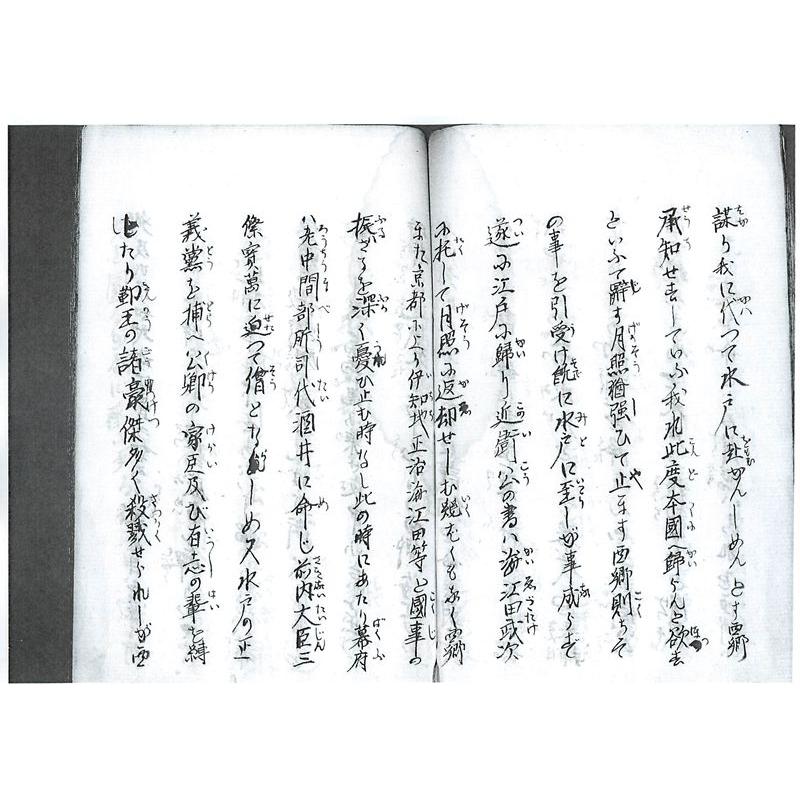 謀り我に代つて水戸に赴かんしめんとす西郷
承知せずしていふ我れ此度本國へ歸らんと欲す
といふて辭す月照猶強ひて止まず西郷則ちそ
の事を引受け既に水戸に至しが事成らず
遂に江戸に歸り近衛公の書ハ海江田武次
に托して月照に返却せしむ幾くもなく西郷
また京都に上り伊知地正治海江田等と國事の
振ざるを深く憂ひ止む時なし此の時にあたり幕府
ハ老中間部所司代酒井に命じ前内大臣三
條實萬に迫つて僧とならしめ又水戸の正
義黨を捕へ公卿の家臣及び有志の輩を縛
したり勤王の諸豪傑多く殺戮せられしが西